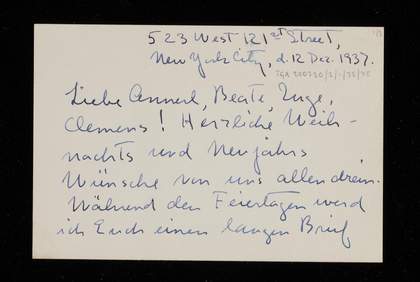 523 West 121st Street,
New York City, d. 12 Dez. 1937.
Liebe Annerl, Beate, Inge,
Clemens! Herzliche Weih-
nachts und Neujahrs
Wünsche von uns allen drein.
Während den Feiertagen werd
ich Euch einen langen Brief